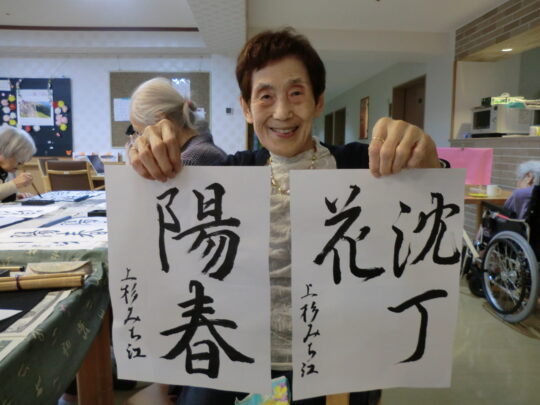 陽春
上杉みち江
沈丁
花
上杉みち江